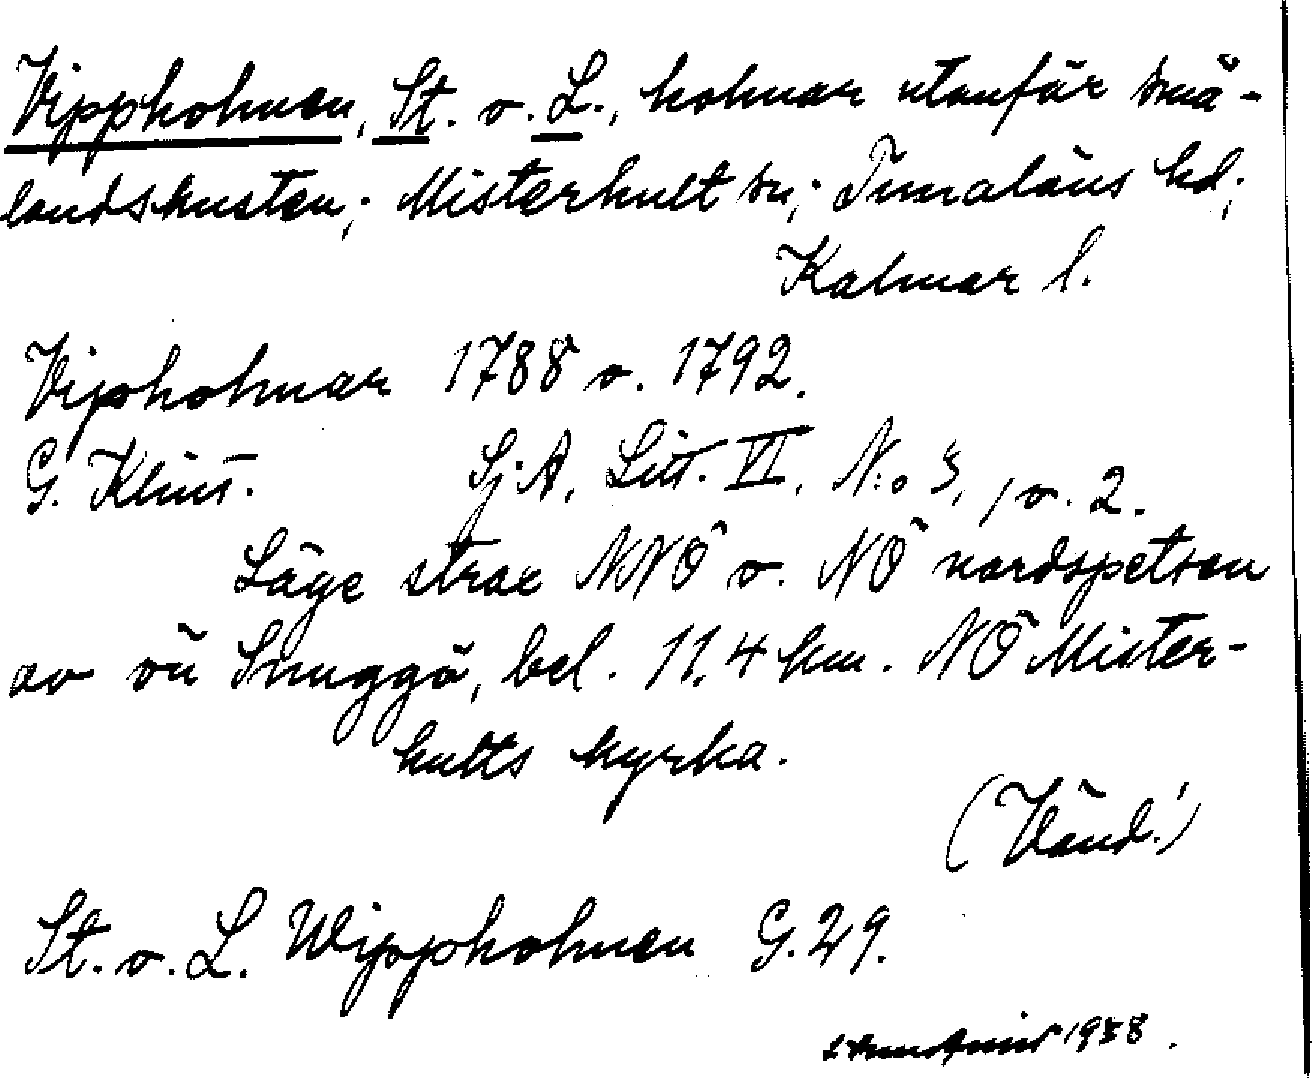 Vippholmen, St. o. L., holmar utanför små-
landskusten; Misterhult sn; Tunaläns hd;
Kalmar l.
Vipholmar 1788 o. 1792.
G. Klint. Sj.A. Litt. VI, N:o 3, 1 o. 2.
Läge strax NNÖ o. NÖ nordspetsen
av ön Snuggö, bel. 11,4 km. NÖ Mister-
hults kyrka.
(Vänd!)
St. o. L. Wippholmen G.29.
1938.